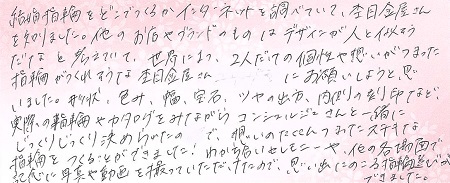 結婚指輪をどこでつくるかインターネットを調べていて、杢目金屋さん
を知りました。他のお店やブランドのものはデザインが人と似そう
だなと考えていて、世界に1つ、2人だけの個性や想いがつまった
指輪がつくれそうな杢目金屋さん にお願いしようと思
いました。形状、色み、幅、宝石、ツヤの出方、内ぼりの刻印など、
実際の指輪やカタログをみながらコンシェルジュさんと一緒に
じっくりじっくり決められたので、想いのたくさんつまったステキな
指輪をつくることができました!わかち合いセレモニーや、他の各場面で
記念に写真や動画を撮っていただけたので、思い出にのこる指輪選びが
できました。